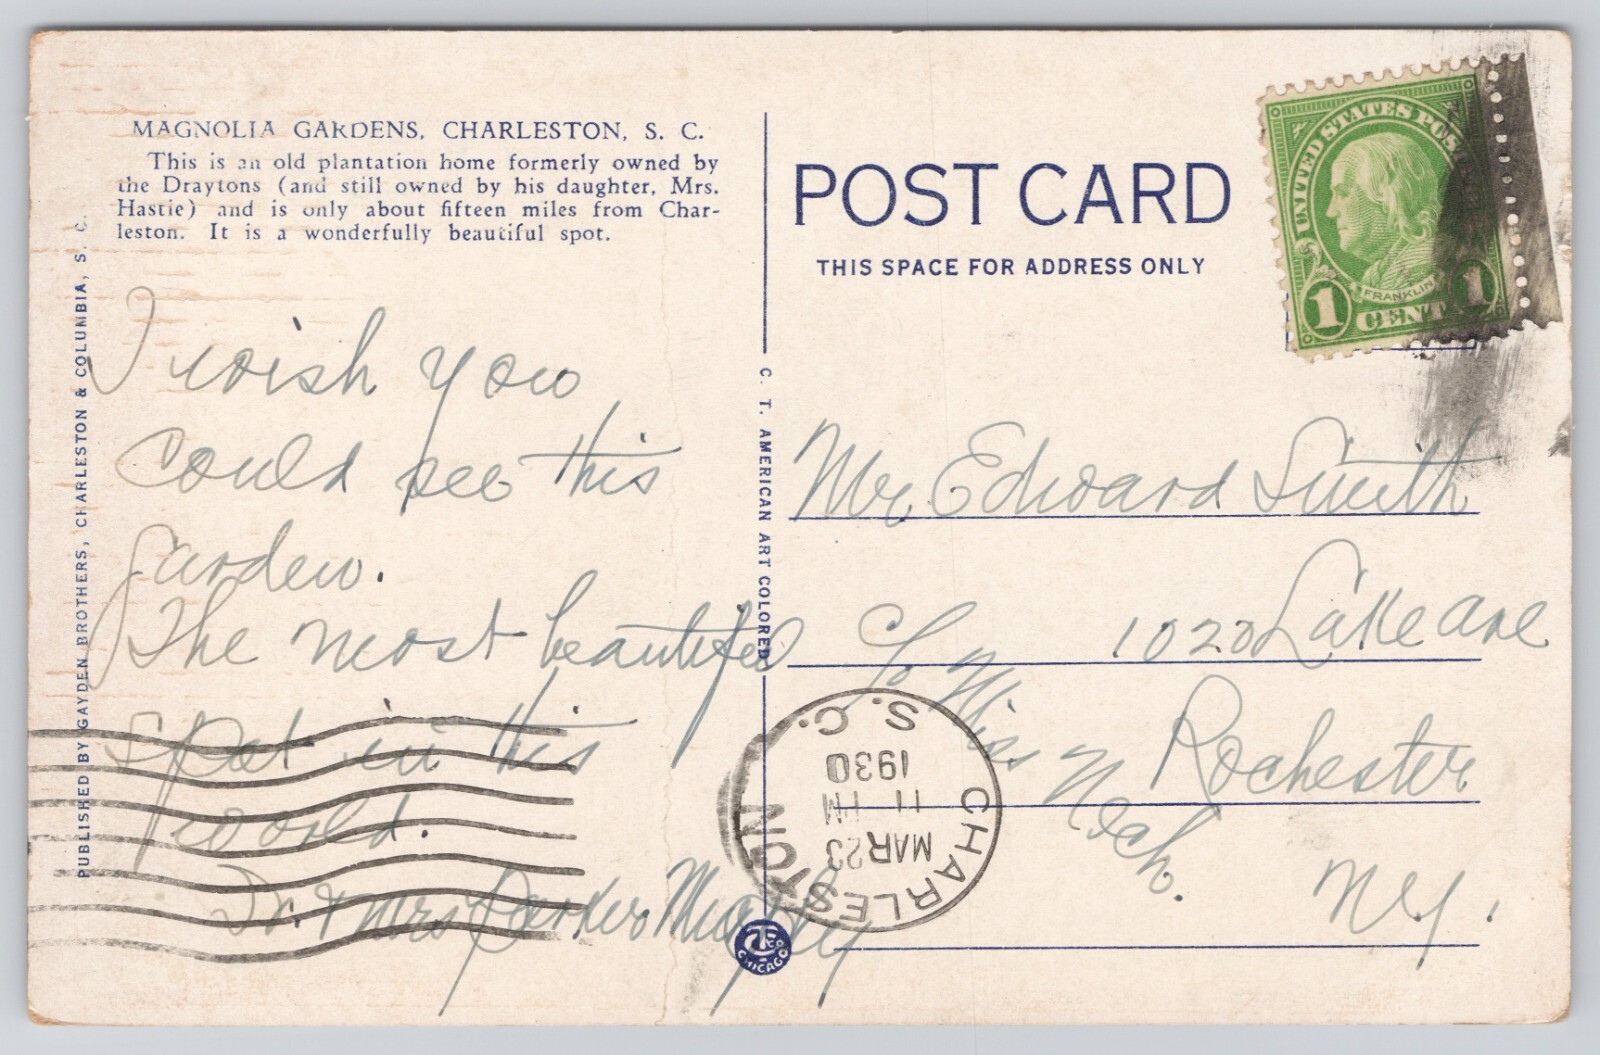 MAGNOLIA GARDENS, CHARLESTON, S. C.
This is an old plantation home formerly owned by
the Draytons (and still owned by his daughter, Mrs.
Hastie) and is only about fifteen miles from Char-
leston. It is a wonderfully beautiful spot.
PUBLISHED BY GAYDEN BROTHERS, CHARLESTON & COLUMBIA, S. C.
I wish you
could see this
garden.
The most beautiful
spot in this
world.
Dr. & Mrs Parker Murphy
C. T. AMERICAN ART COLORED
CHICAGO
POST CARD
THIS SPACE FOR ADDRESS ONLY
UNITED STATES POSTAGE
FRANKLIN
1 CENT 1
Mr Edward Smith
1020 Lake Ave
Rochester
N.Y.
c/o Miss
CHARLESTON
MAR 23
11 PM
1930
S. C.